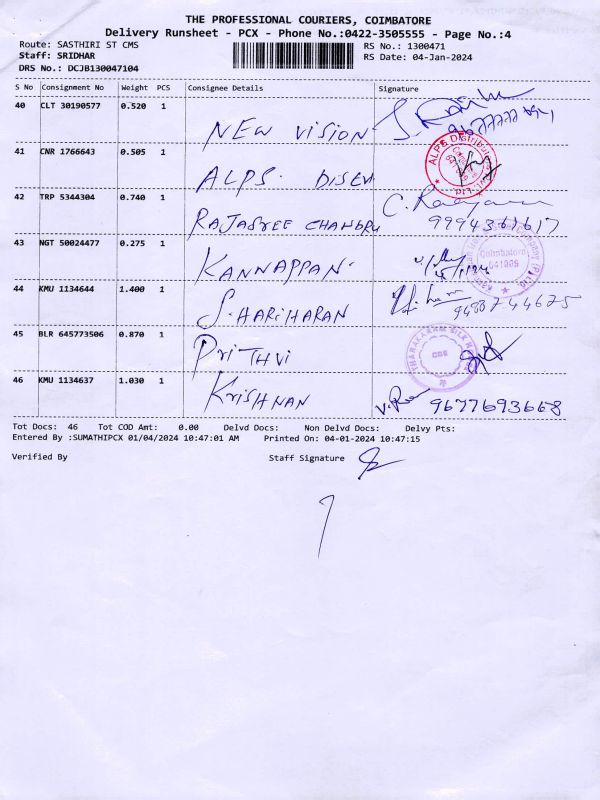 THE PROFESSIONAL COURIERS, COIMBATORE
Delivery Runsheet - PCX - Phone No.:0422-3505555 - Page No.:4
Route: SASTHIRI ST CMS RS No.: 1300471
Staff: SRIDHAR RS Date: 04-Jan-2024
DRS No.: DCJB130047104
S No Consignment No Weight PCS Consignee Details Signature
40 CLT 30190577 0.520 1
NEW VISION
41 CNR 1766643 0.505 1
ALPS.
ALPS Distribut
42 TRP 5344304 0.740 1
RAJASREE CHANDRU
9994361617
43 NGT 50024477 0.275 1
KANNAPPAN.
Coimbatore
641 009
44 KMU 1134644 1.400 1
S. HARIHARAN
9488744675
45 BLR 645773506 0.870 1
PRITHVI
CBE
46 KMU 1134637 1.030 1
KRISHNAN
9677693668
Tot Docs: 46 Tot COD Amt: 0.00 Delvd Docs: Non Delvd Docs: Delvy Pts:
Entered By :SUMATHIPCX 01/04/2024 10:47:01 AM Printed On: 04-01-2024 10:47:15
Verified By Staff Signature